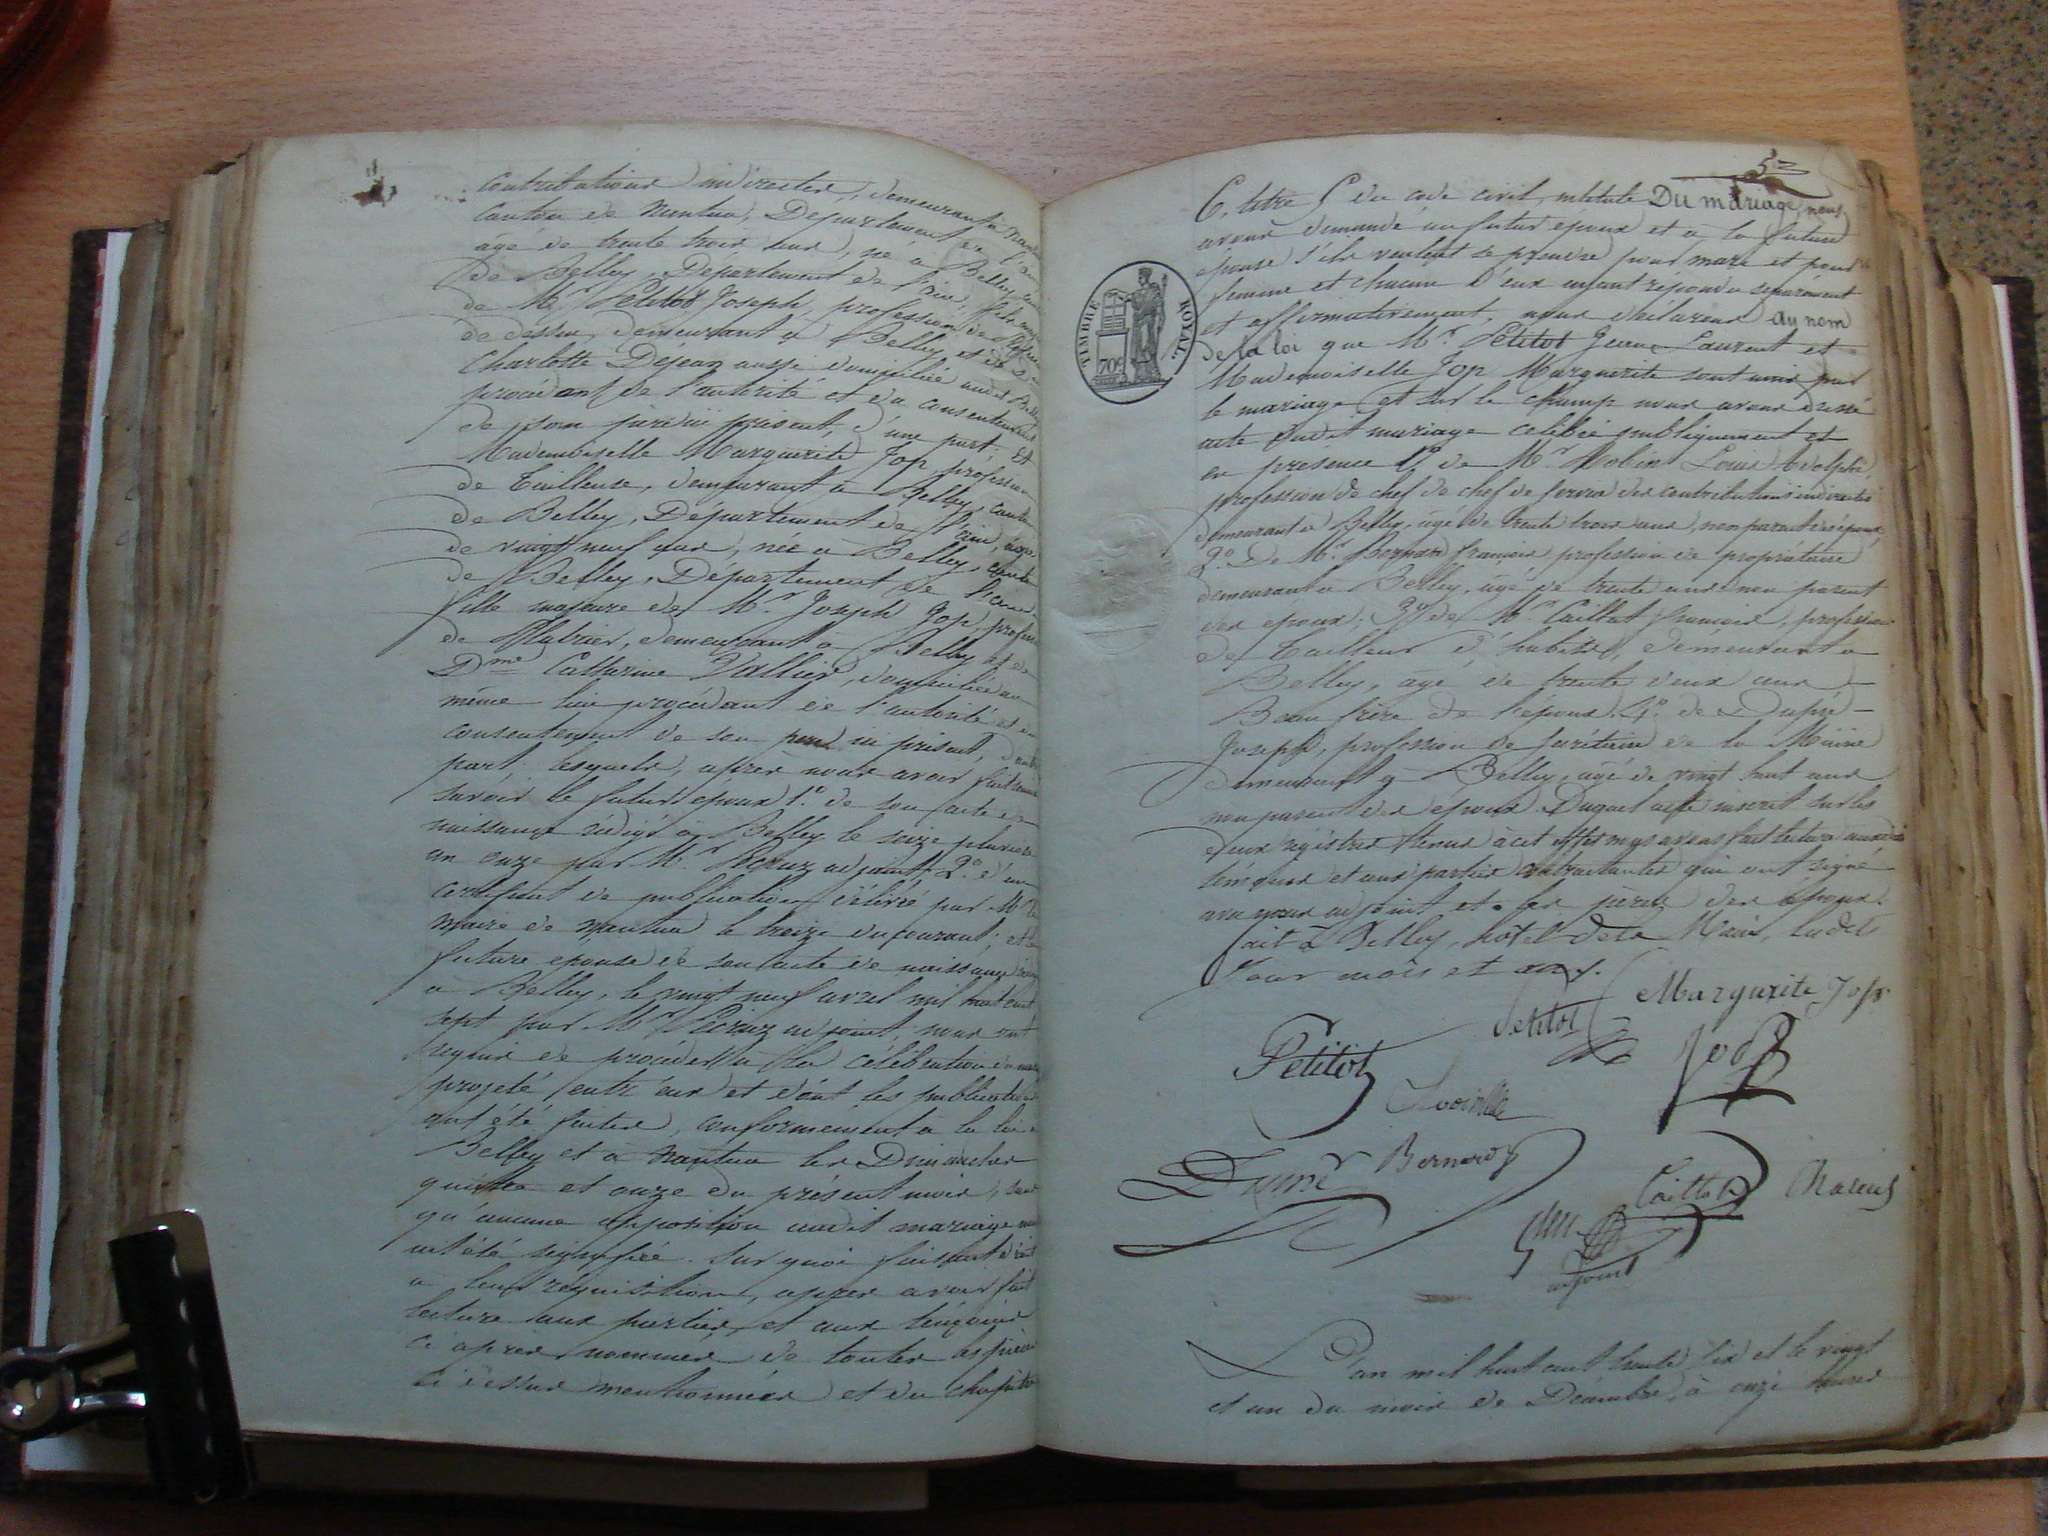 contributions indirectes, demeurant à
canton de Nantua, Département de l'ain
âgé de trente trois ans, né à Belley,
de Belley, Département de l'ain, fils
de Mr Petitot Joseph, profession de
de dessin, demeurant à Belley et de
Charlotte Déjean aussi domiciliée audit Belley
procédant de l'autorité et du consentement
de son père ici présent, d'une part; Et
Mademoiselle Marguerite Jop, profession
de Tailleuse, demeurant à Belley, canton
de Belley, Département de l'ain, âgée
de vingt neuf ans, née à Belley, canton
de Belley, Département de l'ain
fille majeure de Mr Joseph Jop, profession
de demeurant à Belley et de
Dme Catherine Vallier, domiciliée au
même lieu procédant de l'autorité et du
consentement de son père ici présent, d'autre
part; lesquels, après nous avoir fait
savoir le futur époux 1o. de son acte de
naissance rédigé à Belley le seize pluviose
an onze par Mr adjoint 2o. d'un
certificat de publication délivré par Mr le
maire de Nantua le treize du courant; et la
future épouse de son acte de naissance
à Belley, le vingt neuf avril mil huit cent
sept par Mr adjoint, nous ont
requis de procéder à la célébration du
projeté entr'eux et dont les publications
ont été faites, conformément à la loi à
Belley et à Nantua les Dimanches
quatre et onze du présent mois, sans
qu'aucune opposition audit mariage
ait été signifiée. Sur quoi faisant droit
à leur réquisition, après avoir fait
lecture aux parties, et aux témoins
ci après nommés de toutes les pièces
ci dessus mentionnées et du chapitre
52
6, titre 5 du code civil, intitulé Du mariage, nous
avons demandé au futur époux et à la future
épouse s'ils veulent se prendre pour mari et pour
femme et chacun d'eux ayant répondu séparément
et affirmativement, nous déclarons au nom
de la loi que Mr. Petitot Laurent et
Mademoiselle Jop Marguerite sont unis par
le mariage et sur le champ nous avons dressé
acte dudit mariage célébré publiquement et
en présence 1o de Mr Louis Adolphe,
profession de chef de chef de service des contributions indirectes
demeurant à Belley, âgé de trente trois ans, non parent des époux,
2o. De Mr. François profession de propriétaire
demeurant à Belley, âgé de trente ans non parent
des époux; 3o de Mr Caillat François, profession
de Tailleur d'habits, demeurant à
Belley, âgé de trente deux ans
Beau frère de l'époux. 4o. de Dupré
Joseph, profession de secrétaire de la Mairie
demeurant à Belley, âgé de vingt huit ans
non parent des époux. Duquel acte inscrit sur les
deux régistres tenus à cet effet nous avons fait lecture aux
témoins et aux parties contractantes qui ont signé
avec nous adjoint et les pères des époux.
fait à Belley, hôtel de la Mairie, lesdits
Jour mois et an.
TIMBRE ROYAL
70c
Petitot Marguerite Jop
Petitot Jop
Dupré Bernard
Caillat
adjoint
L'an mil huit cent trente six et le vingt
et un du mois de Décembre, à onze heures